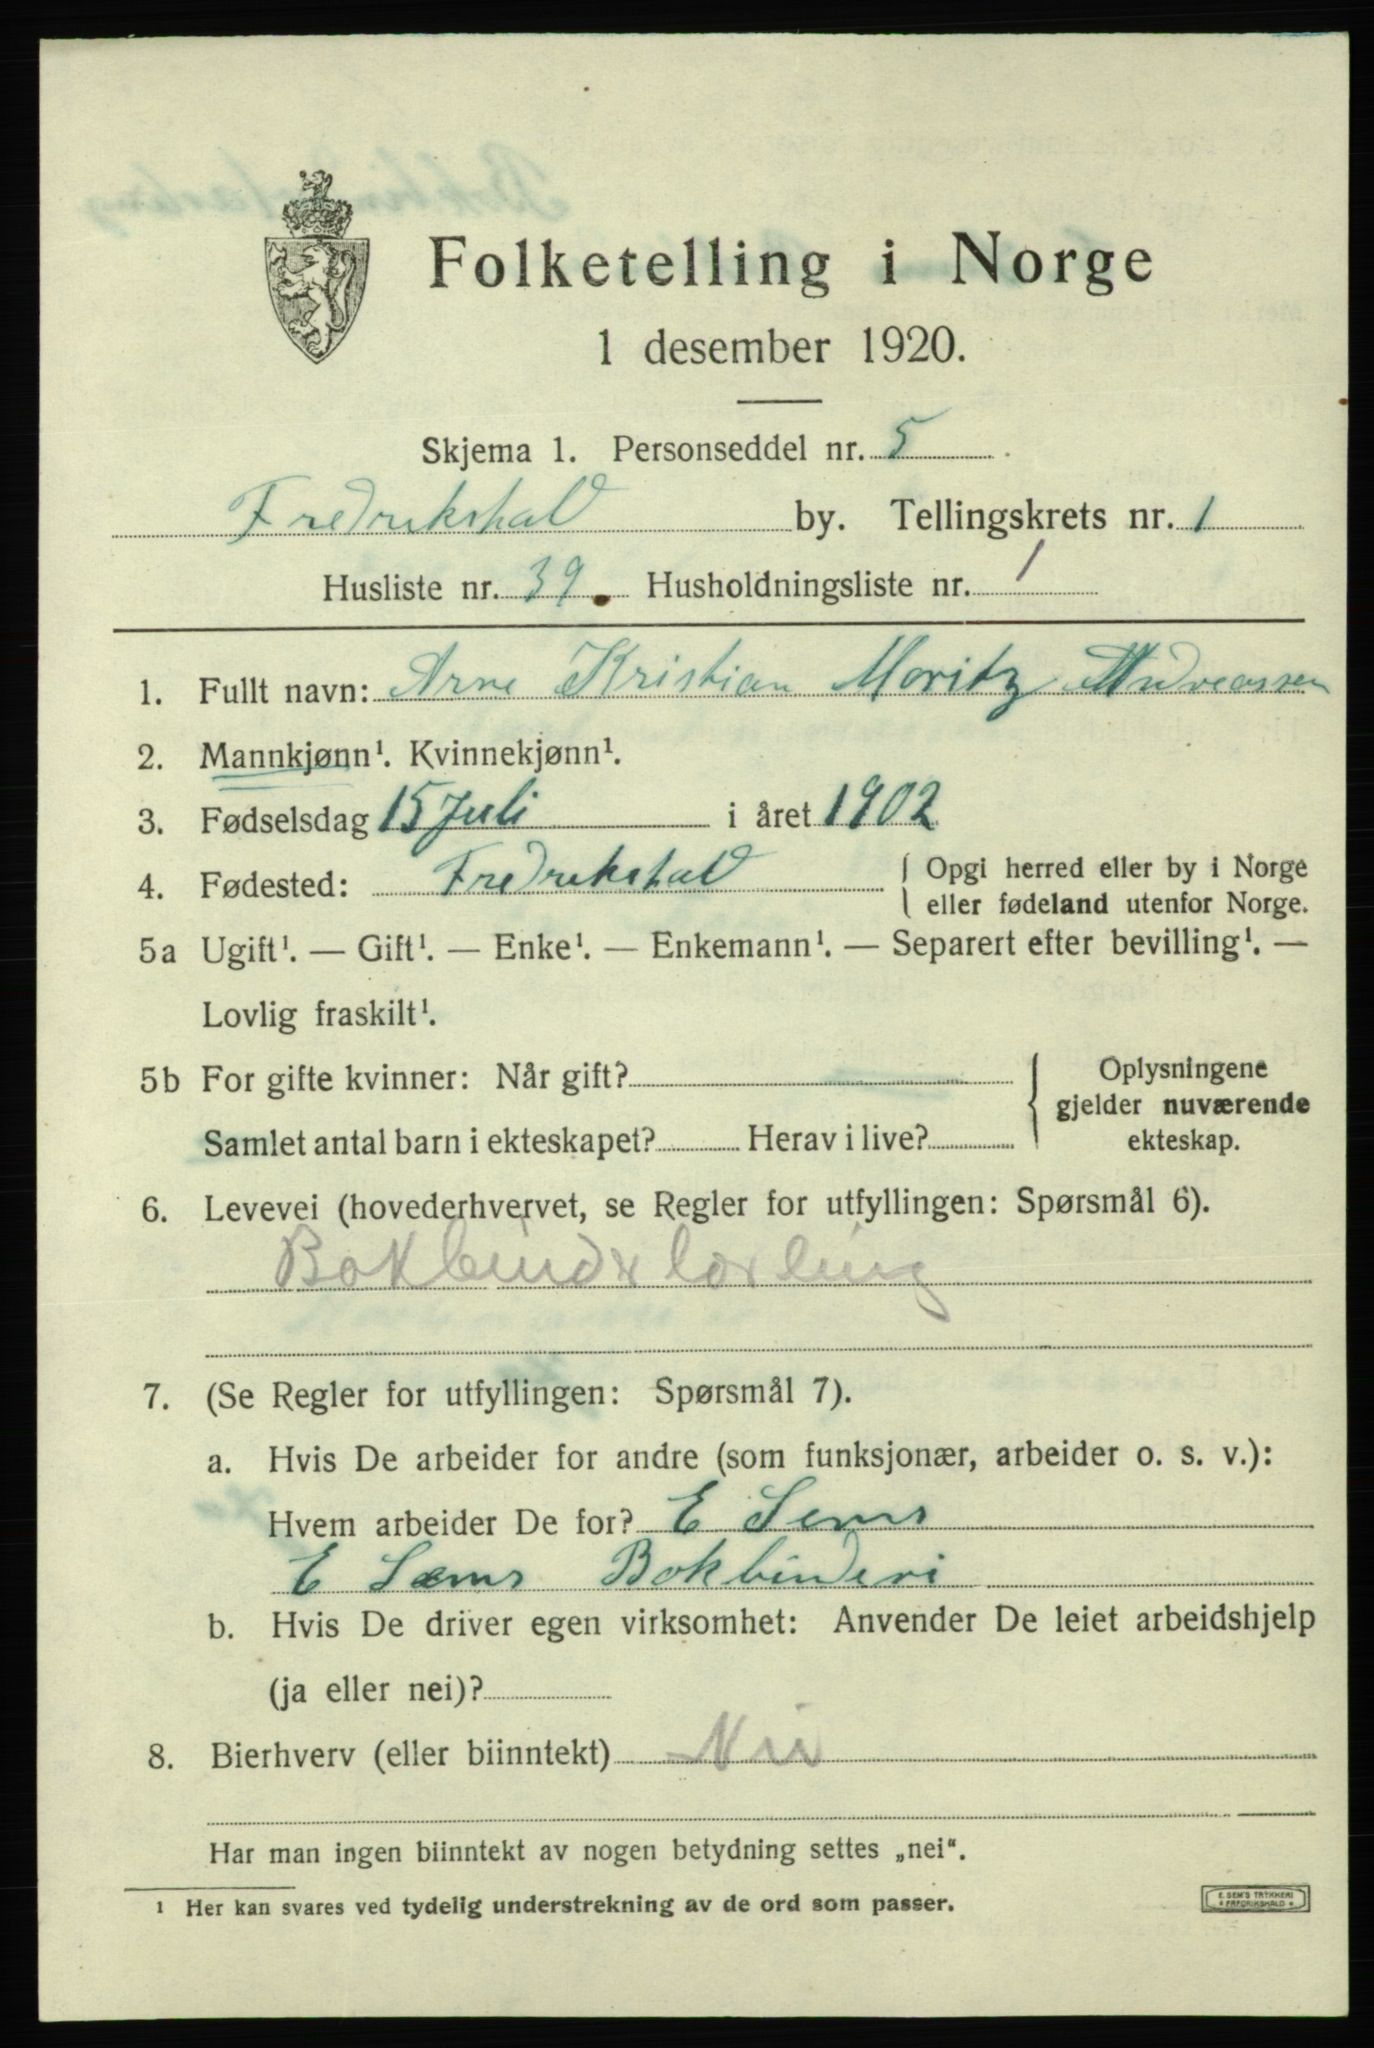 Folketelling i Norge
1 desember 1920.
Skjema 1. Personseddel nr. 5
Fredrikshald by. Tellingskrets nr. 1
Husliste nr. 39. Husholdningsliste nr. 1
1. Fullt navn: Arne Kristian Moritz Andreassen
2. Mannkjønn¹. Kvinnekjønn¹.
3. Fødselsdag 15 Juli i året 1902
4. Fødested: Fredrikshald { Opgi herred eller by i Norge
eller fødeland utenfor Norge.
5a Ugift¹. — Gift¹. — Enke¹. — Enkemann¹. — Separert efter bevilling¹. —
Lovlig fraskilt¹.
5b For gifte kvinner: Når gift? { Oplysningene
gjelder nuværende
Samlet antal barn i ekteskapet? Herav i live? ekteskap.
6. Levevei (hovederhvervet, se Regler for utfyllingen: Spørsmål 6).
Bokbinderlærling
7. (Se Regler for utfyllingen: Spørsmål 7).
a. Hvis De arbeider for andre (som funksjonær, arbeider o. s. v.):
Hvem arbeider De for? E Sems
E Sems Bokbinderi
b. Hvis De driver egen virksomhet: Anvender De leiet arbeidshjelp
(ja eller nei)?
8. Bierhverv (eller biinntekt) Nei
Har man ingen biinntekt av nogen betydning settes „nei“.
¹ Her kan svares ved tydelig understrekning av de ord som passer.
E. SEM'S TRYKKERI
* FREDRIKSHALD *